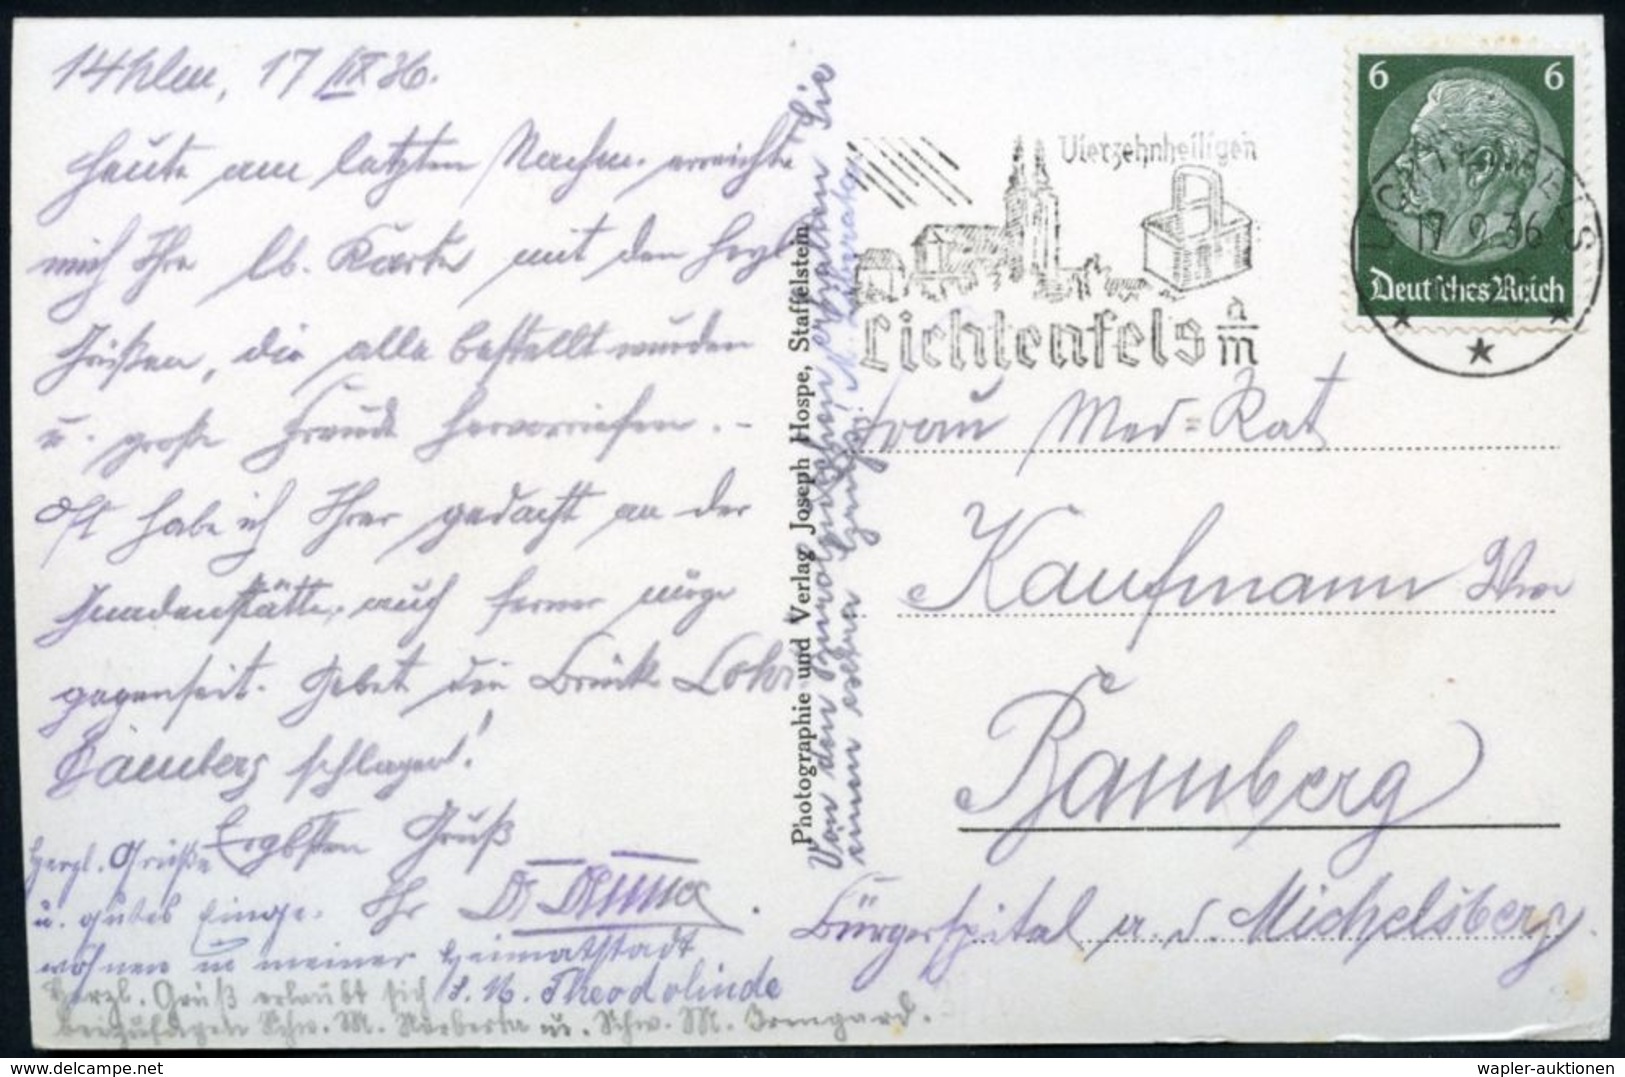 14hlen, 17 IX 36.
Heute am letzten Nachm. erreichte
mich Ihre lb. Karte mit den herzl.
Grüßen, die alle bestellt wurden
u. große Freude hervorriefen. –
Oft habe ich Ihrer gedacht an der
Gnadenstätte, auch ferner möge
gegenseit. Gebet die Brücke Lohr
Bamberg schlagen!
Ergbsten Gruß
Ihr Dr
Herzl. Grüße
u. gutes Einge-
wöhnen in meiner Heimatstadt
S. M. Theodolinde
Herzl. Gruß erlaubt sich
beizufügen Schw. M. Norberta u. Schw. M. Irmgard.
Photographie und Verlag Joseph Hospe, Staffelstein
Von den erhalten Sie
einen
Vierzehnheiligen
Lichtenfels a/m
LICHTENFELS
17.9.36
6 6
Deutsches Reich
Frau Med-Rat
Kaufmann Wwe
Bamberg
Bürgerspital a. d. Michelsberg.
wapler-auktionen